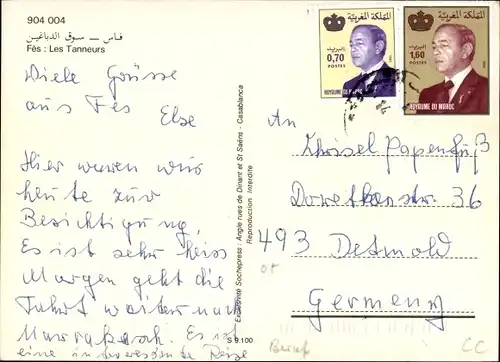 904 004
فـاس — سـوق الدباغيـن
Fès : Les Tanneurs
Viele Grüsse
aus Fes
Else
Hier waren wir
heute zur
Besichtigung,
Es ist sehr heiss
Morgen geht die
Fahrt weiter nach
Marrakesch. Es ist
eine interessante Reise
Exclusivité Sochepress : Angle rues de Dinant et St Saëns - Casablanca
Reproduction Interdite
S 9.100
المملكة المغربية
البريد
0,70
POSTES
ROYAUME DU MAROC
المملكة المغربية
البريد
1,60
POSTES
ROYAUME DU MAROC
An
Papenfuß
36
493 Detmold
Germany
CC